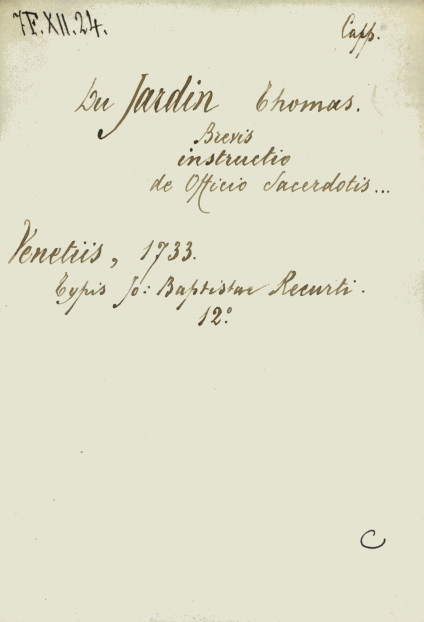 7F.XII.24.
Capp.
Du Jardin Thomas.
Brevis
instructio
de Officio Sacerdotis...
Venetiis, 1733.
Typis Jo: Baptistae Recurti.
12°
C